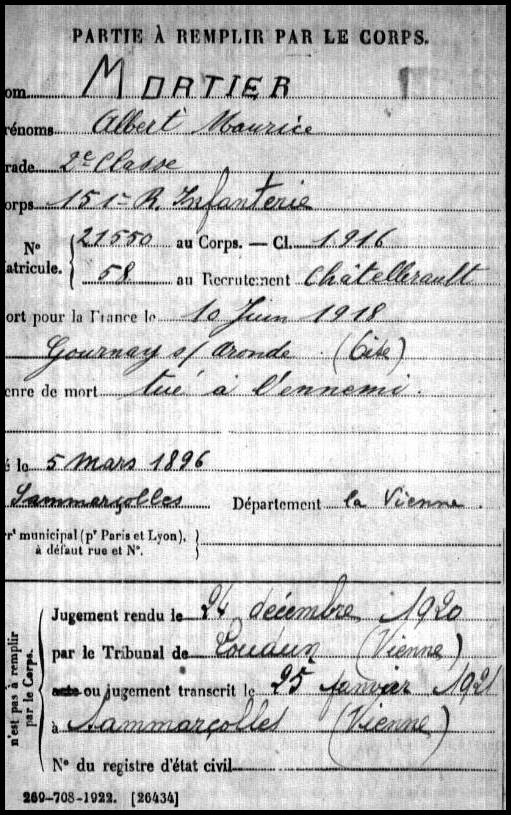 PARTIE À REMPLIR PAR LE CORPS.
om MORTIER
rénoms Albert Maurice
rade 2e Classe
orps 151e R. Infanterie
N° 21550 au Corps. — Cl. 1916
atricule. 58 au Recrutement Châtellerault
ort pour la France le 10 Juin 1918
Gournay s/ Aronde (Oise)
enre de mort tué à l'ennemi.
é le 5 mars 1896
Sammarçolles Département la Vienne.
rt municipal (pr Paris et Lyon),
à défaut rue et N°.
n'est pas à remplir
par le Corps.
Jugement rendu le 24 décembre 1920
par le Tribunal de Loudun (Vienne)
acte ou jugement transcrit le 25 janvier 1921
à Sammarçolles (Vienne)
N° du registre d'état civil
269-708-1922. [26434]